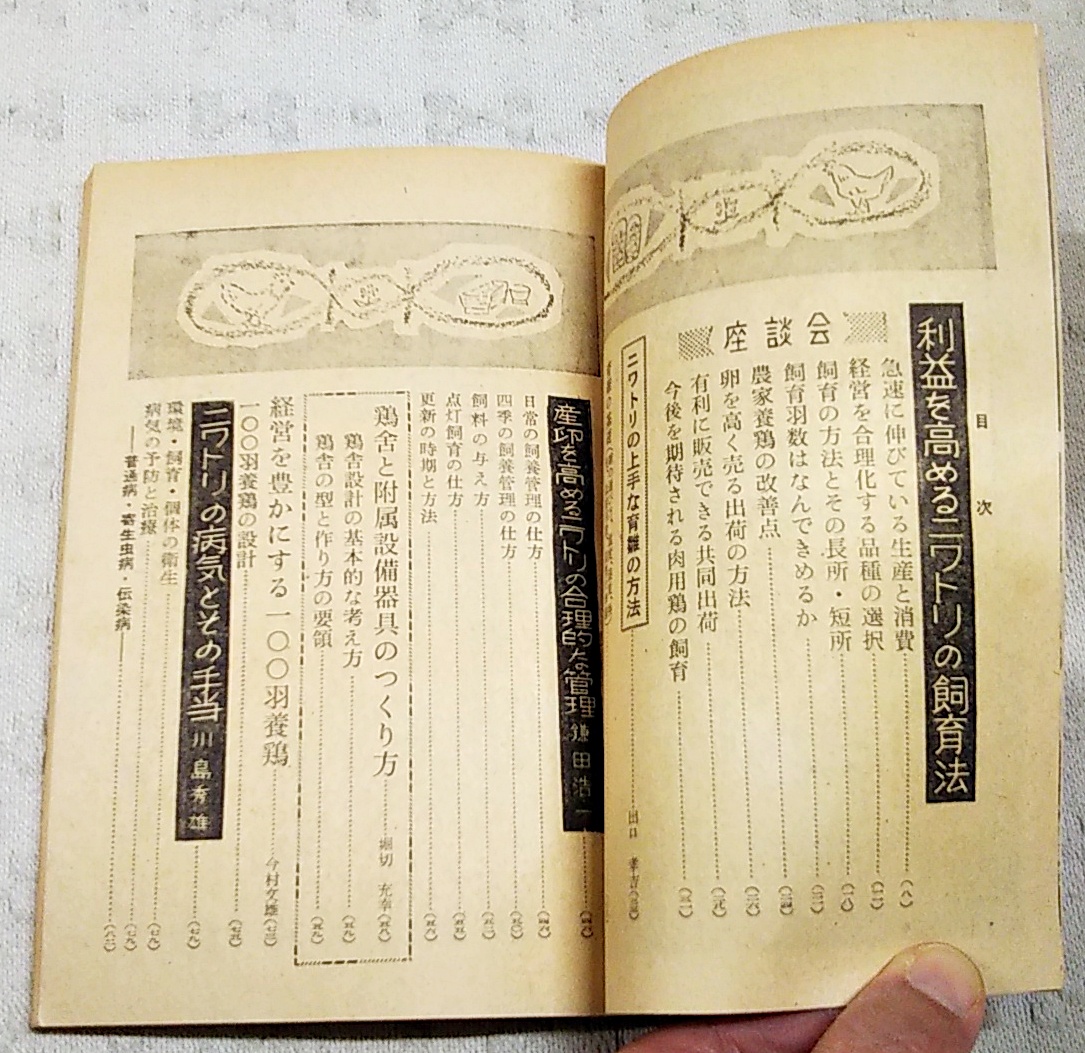 目次
利益を高めるニワトリの飼育法
座談会
急速に伸びている生産と消費……(八)
経営を合理化する品種の選択……(一一)
飼育の方法とその長所・短所……(一八)
飼育羽数はなんできめるか……(二二)
農家養鶏の改善点……(二四)
卵を高く売る出荷の方法……(二六)
有利に販売できる共同出荷……(二九)
今後を期待される肉用鶏の飼育……(三一)
ニワトリの上手な育雛の方法……出口
産卵を高めるニワトリの合理的な管理 鎌田浩一
日常の飼養管理の仕方
四季の飼養管理の仕方
飼料の与え方
点灯飼育の仕方
更新の時期と方法
鶏舎と附属設備器具のつくり方……堀切 充幸(五八)
鶏舎設計の基本的な考え方……(五九)
鶏舎の型と作り方の要領……(五九)
経営を豊かにする一〇〇羽養鶏……今村文雄(七三)
一〇〇羽養鶏の設計……(七五)
ニワトリの病気とその手当 川島秀雄……(七九)
環境・飼育・個体の衛生……(七九)
病気の予防と治療……(七九)
――普通病・寄生虫病・伝染病――……(八二)